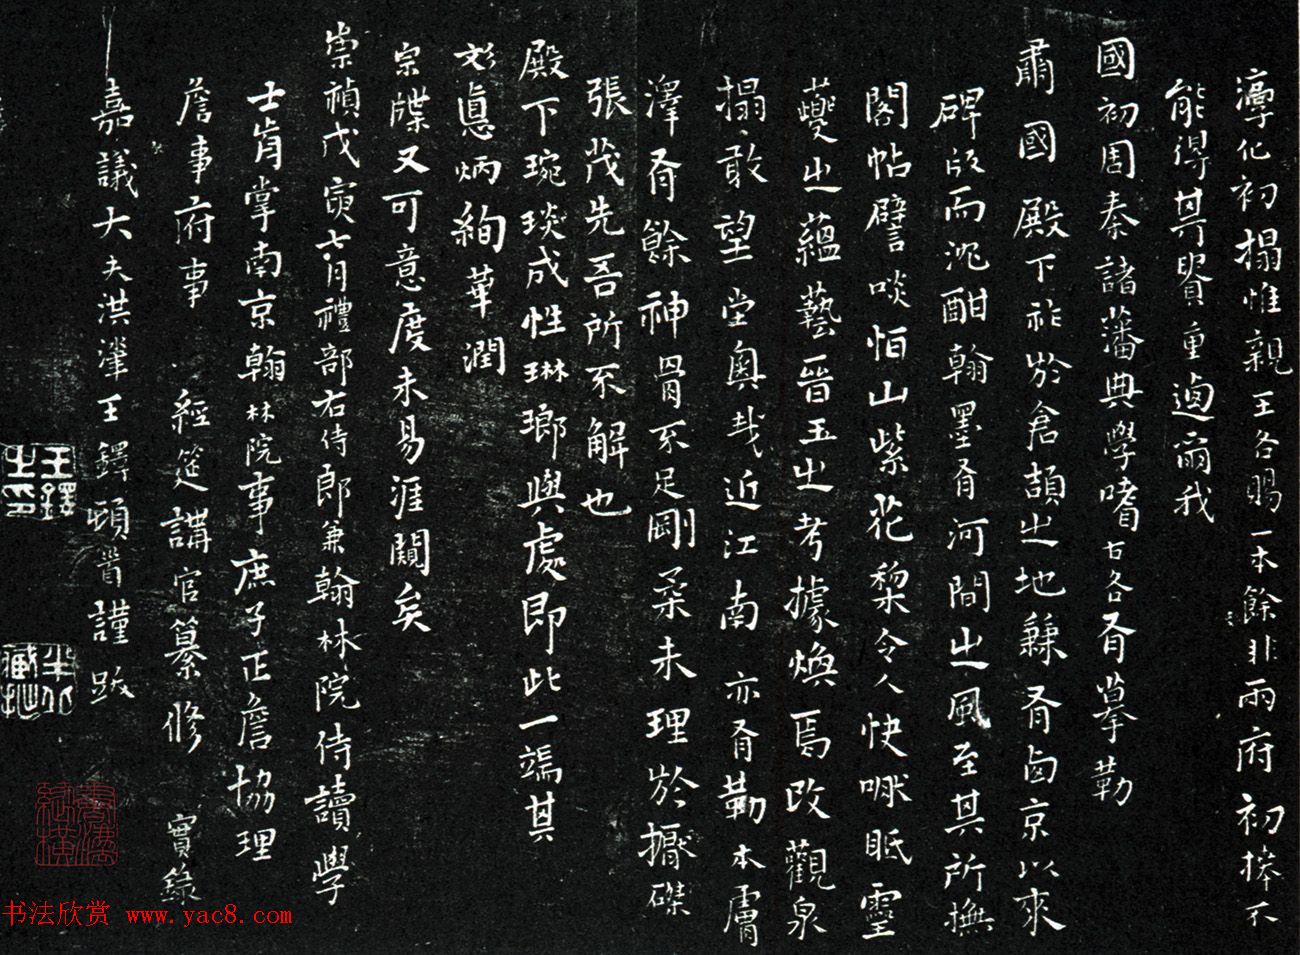 淳化初搨惟親王各賜一本餘非兩府初捧不
能得其貴重
國初周秦諸藩典學嗜古各有摹勒
肅國殿下祚於倉頡之地有京以來
碑版而沈酣翰墨有河間之風至其所撫
閣帖譬啖怕山紫花梨令人快眂靈
夔之蘊藝晉玉之考據煥焉改觀泉
搨敢望堂奧哉近江南亦有勒本膚
澤有餘神骨不足剛柔未理於磔
張茂先吾所不解也
殿下琬琰成性琳瑯與處即此一端其
彣悳炳絢華潤
宗牒又可意度未易涯闚矣
崇禎戊寅七月禮部右侍郎兼翰林院侍讀學
士肯掌南京翰林院事庶子正詹協理
詹事府事 經筵講官纂修 實錄
嘉議大夫洪瀍王鐸頓首謹跋
王鐸之印
書法欣賞 www.yac8.com